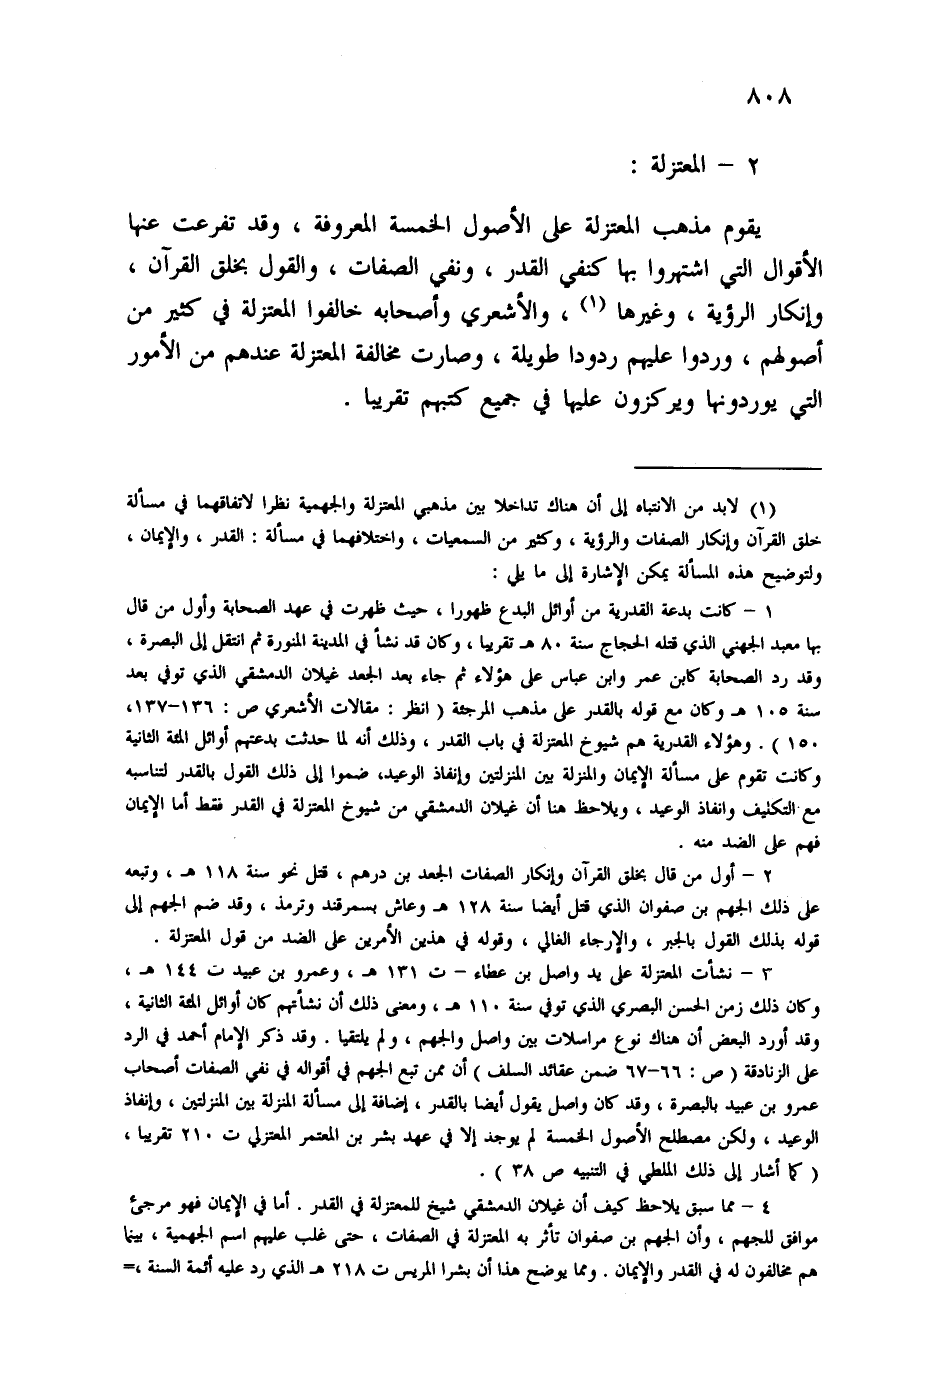 ٨٠٨
٢ – المعتزلة :
يقوم مذهب المعتزلة على الأصول الخمسة المعروفة ، وقد تفرعت عنها
الأقوال التي اشتهروا بها كنفي القدر ، ونفي الصفات ، والقول بخلق القرآن ،
وإنكار الرؤية ، وغيرها (١) ، والأشعري وأصحابه خالفوا المعتزلة في كثير من
أصولهم ، وردوا عليهم ردودا طويلة ، وصارت مخالفة المعتزلة عندهم من الأمور
التي يوردونها ويركزون عليها في جميع كتبهم تقريبا .
(١) لابد من الانتباه إلى أن هناك تداخلا بين مذهبي المعتزلة والجهمية نظرا لاتفاقهما في مسألة
خلق القرآن وإنكار الصفات والرؤية ، وكثير من السمعيات ، واختلافهما في مسألة : القدر ، والإيمان ،
ولتوضيح هذه المسألة يمكن الإشارة إلى ما يلي :
١ – كانت بدعة القدرية من أوائل البدع ظهورا ، حيث ظهرت في عهد الصحابة وأول من قال
بها معبد الجهني الذي قتله الحجاج سنة ٨٠ هـ تقريبا ، وكان قد نشأ في المدينة المنورة ثم انتقل إلى البصرة ،
وقد رد الصحابة كابن عمر وابن عباس على هؤلاء ثم جاء بعد الجعد غيلان الدمشقي الذي توفي بعد
سنة ١٠٥ هـ وكان مع قوله بالقدر على مذهب المرجئة ( انظر : مقالات الأشعري ص : ١٣٦–١٣٧،
١٥٠ ) . وهؤلاء القدرية هم شيوخ المعتزلة في باب القدر ، وذلك أنه لما حدثت بدعتهم أوائل المئة الثانية
وكانت تقوم على مسألة الإيمان والمنزلة بين المنزلتين وإنفاذ الوعيد، ضموا إلى ذلك القول بالقدر لتناسبه
مع التكليف وانفاذ الوعيد ، ويلاحظ هنا أن غيلان الدمشقي من شيوخ المعتزلة في القدر فقط أما الإيمان
فهم على الضد منه .
٢ – أول من قال بخلق القرآن وإنكار الصفات الجعد بن درهم ، قتل نحو سنة ١١٨ هـ ، وتبعه
على ذلك الجهم بن صفوان الذي قتل أيضا سنة ١٢٨ هـ وعاش بسمرقند وترمذ ، وقد ضم الجهم إلى
قوله بذلك القول بالجبر ، والإرجاء الغالي ، وقوله في هذين الأمرين على الضد من قول المعتزلة .
٣ – نشأت المعتزلة على يد واصل بن عطاء – ت ١٣١ هـ ، وعمرو بن عبيد ت ١٤٤ هـ ،
وكان ذلك زمن الحسن البصري الذي توفي سنة ١١٠ هـ ، ومعنى ذلك أن نشأتهم كان أوائل المئة الثانية ،
وقد أورد البعض أن هناك نوع مراسلات بين واصل والجهم ، ولم يلتقيا . وقد ذكر الإمام أحمد في الرد
على الزنادقة ( ص : ٦٦–٦٧ ضمن عقائد السلف ) أن ممن تبع الجهم في أقواله في نفي الصفات أصحاب
عمرو بن عبيد بالبصرة ، وقد كان واصل يقول أيضا بالقدر ، إضافة إلى مسألة المنزلة بين المنزلتين ، وإنفاذ
الوعيد ، ولكن مصطلح الأصول الخمسة لم يوجد إلا في عهد بشر بن المعتمر المعتزلي ت ٢١٠ تقريبا ،
( كما أشار إلى ذلك الملطي في التنبيه ص ٣٨ ) .
٤ – مما سبق يلاحظ كيف أن غيلان الدمشقي شيخ للمعتزلة في القدر . أما في الإيمان فهو مرجئ
موافق للجهم ، وأن الجهم بن صفوان تأثر به المعتزلة في الصفات ، حتى غلب عليهم اسم الجهمية ، بينما
هم مخالفون له في القدر والإيمان . ومما يوضح هذا أن بشرا المريس ت ٢١٨ هـ الذي رد عليه أئمة السنة ،=